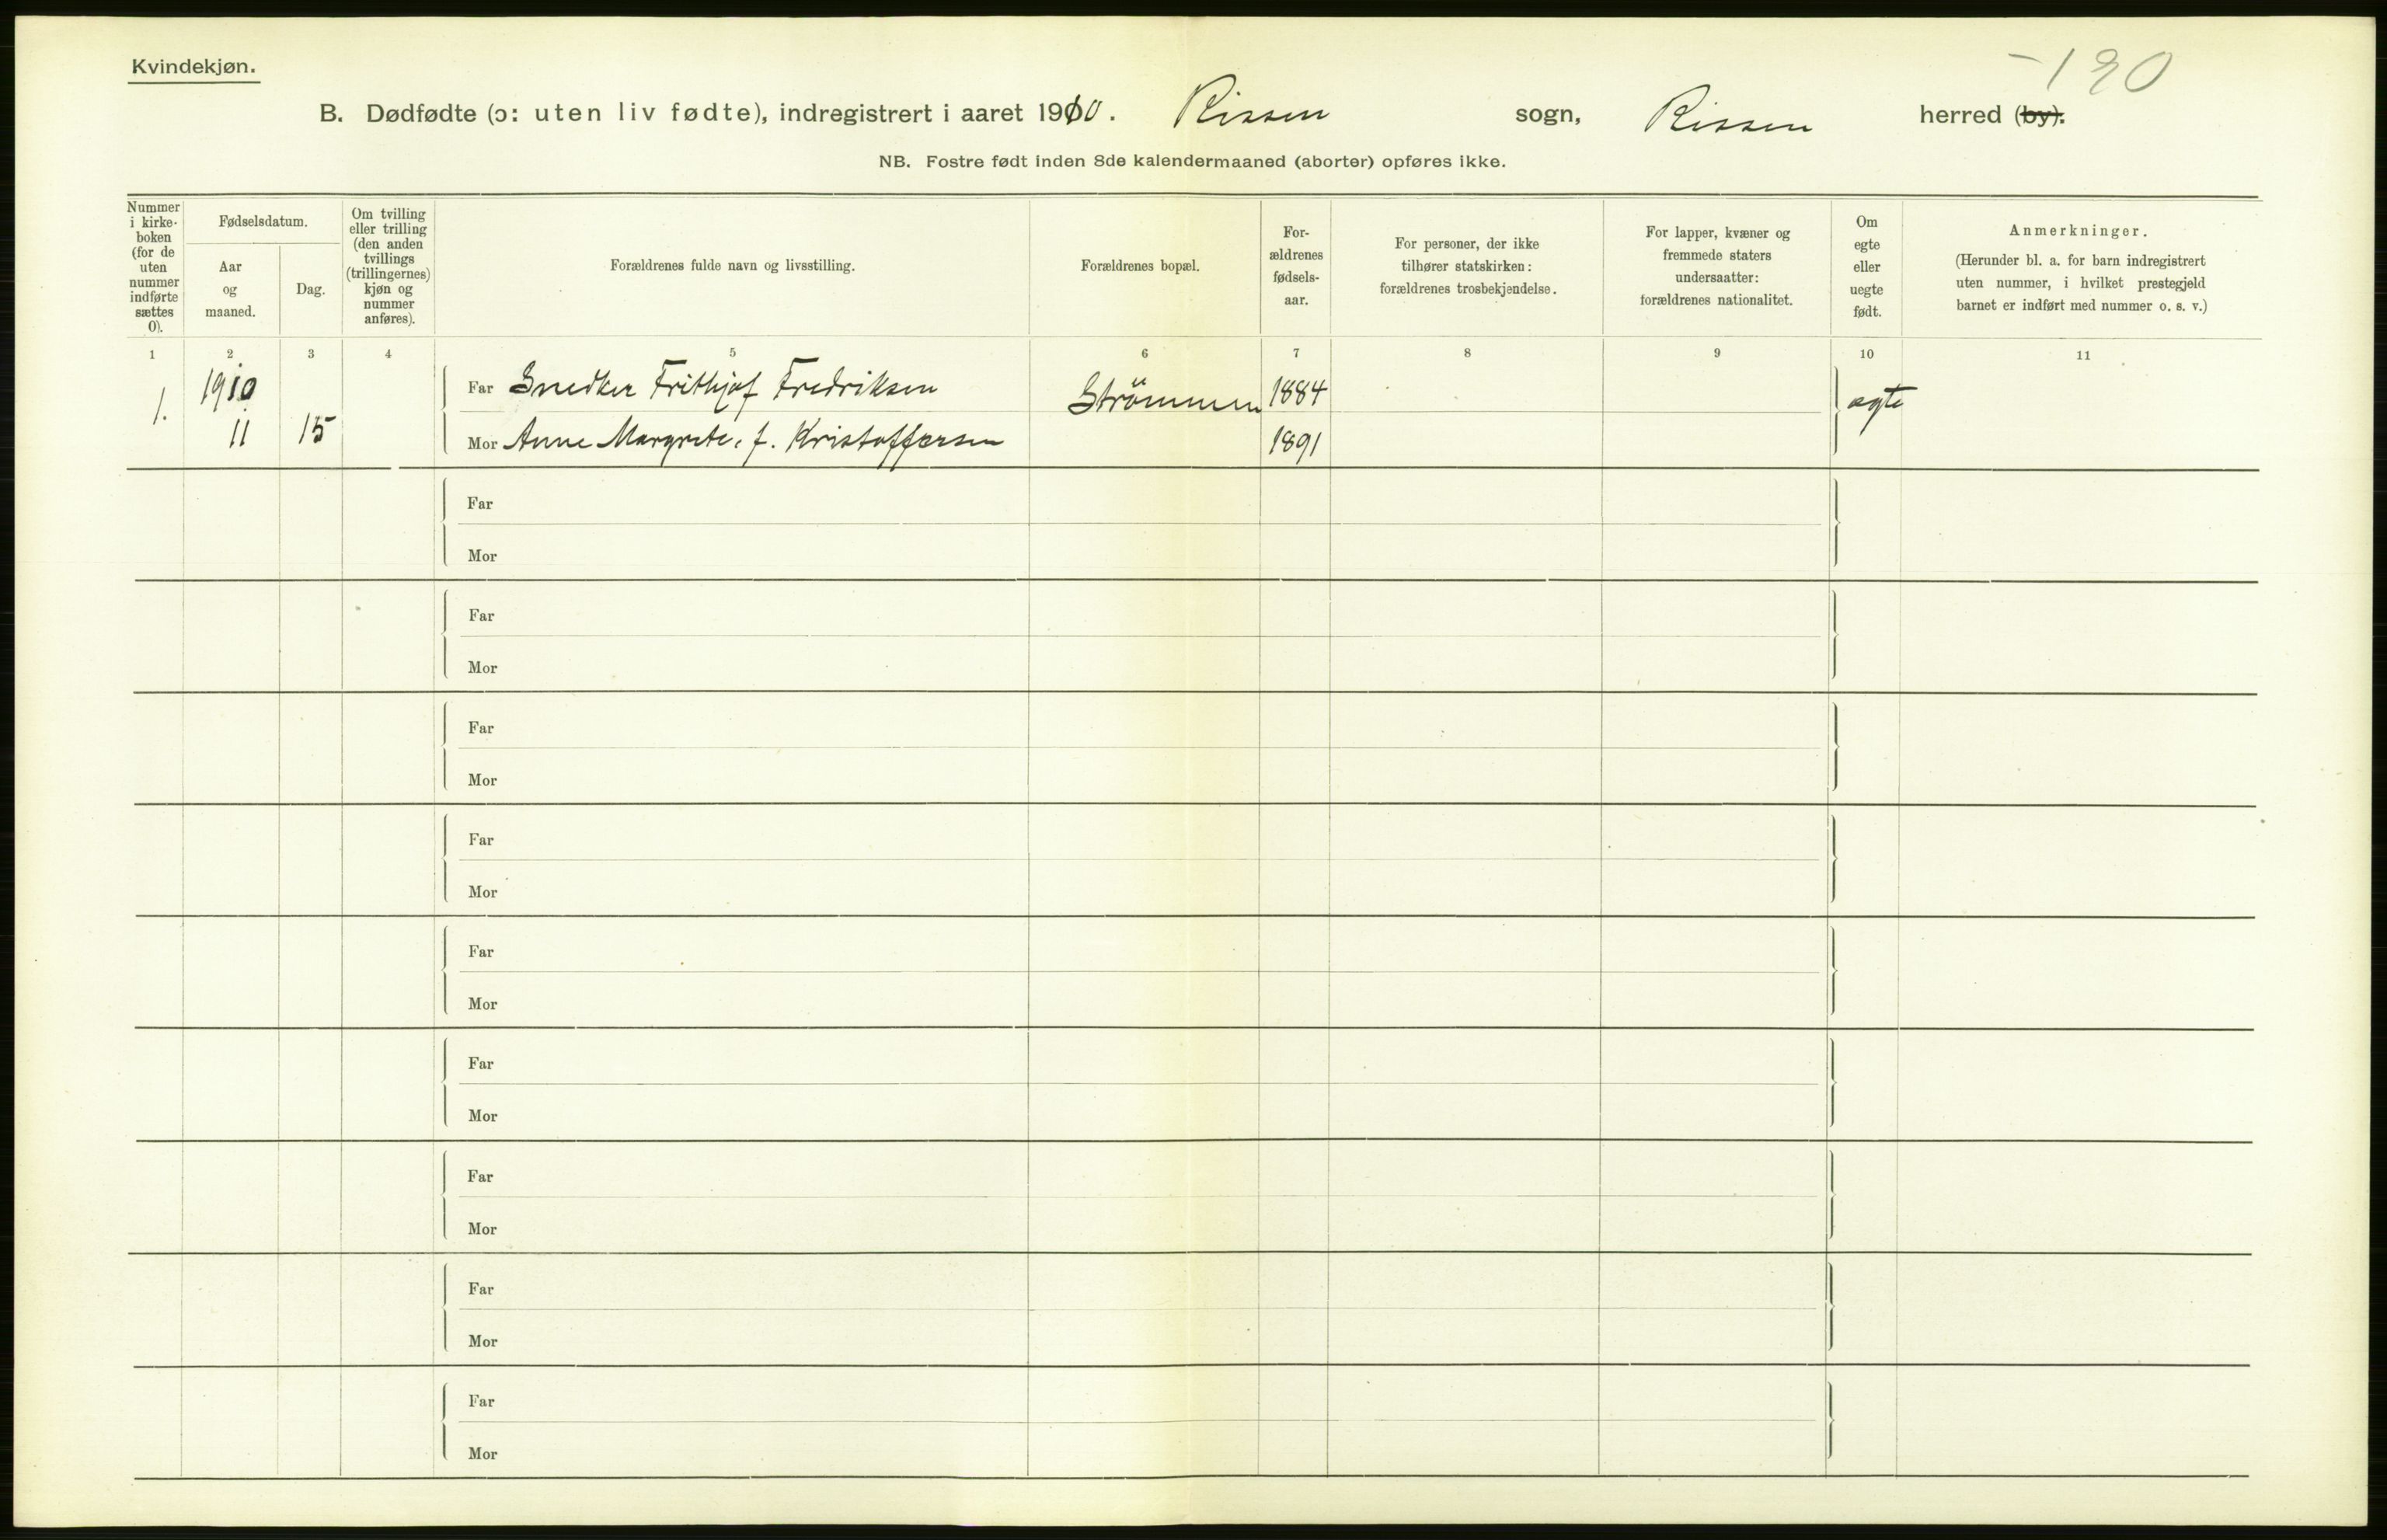 Kvindekjøn.
-190
B. Dødfødte (ɔ: uten liv fødte), indregistrert i aaret 1910. Rissen sogn, Rissen herred (by).
NB. Fostre født inden 8de kalendermaaned (aborter) opføres ikke.
Nummer
i kirke-
boken
(for de
uten
nummer
indførte
sættes
0).
Fødselsdatum.
Aar
og
maaned.
Dag.
Om tvilling
eller trilling
(den anden
tvillings
(trillingernes)
kjøn og
nummer
anføres).
Forældrenes fulde navn og livsstilling.
Forældrenes bopæl.
For-
ældrenes
fødsels-
aar.
For personer, der ikke
tilhører statskirken:
forældrenes trosbekjendelse.
For lapper, kvæner og
fremmede staters
undersaatter:
forældrenes nationalitet.
Om
egte
eller
uegte
født.
Anmerkninger.
(Herunder bl. a. for barn indregistrert
uten nummer, i hvilket prestegjeld
barnet er indført med nummer o. s. v.)
1 2 3 4 5 6 7 8 9 10 11
1. 1910 Far Snedker Frithjof Fredriksen Strömmen 1884 egte
11 15 Mor Anne Margrete, f. Kristoffersen 1891
Far
Mor
Far
Mor
Far
Mor
Far
Mor
Far
Mor
Far
Mor
Far
Mor
Far
Mor
Far
Mor